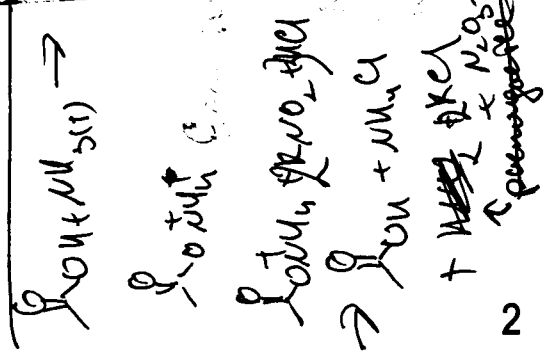 OH + NH3(l) →
O NH4+
ONH4+ 2KNO2 + HCl
→ OH + NH4Cl
+ 2KCl
+ N2O3
2